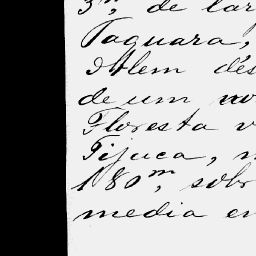 3m, de lar
Taquara,
Alem d'es
de um no
Floresta v
Tijuca, n
180m, sobr
media en